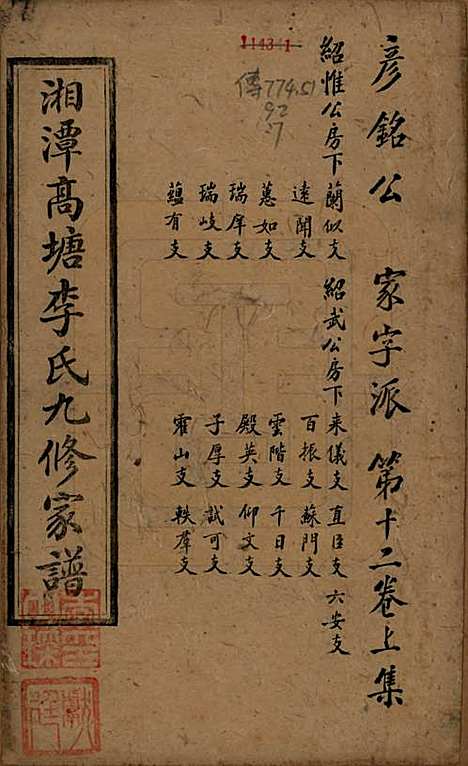 11431
傳774.51
92
:7
彥銘公 家字派 第十二卷上集
紹惟公房下 蘭似支 紹武公房下 来儀支 直臣支 六安支
遠聞支 百振支 蘇門支
蕙如支 雲階支 千日支
瑞庠支 殿英支 仰文支
瑞岐支 子厚支 試可支
蘊有支 霍山支 軼羣支
湘潭高塘李氏九修家譜